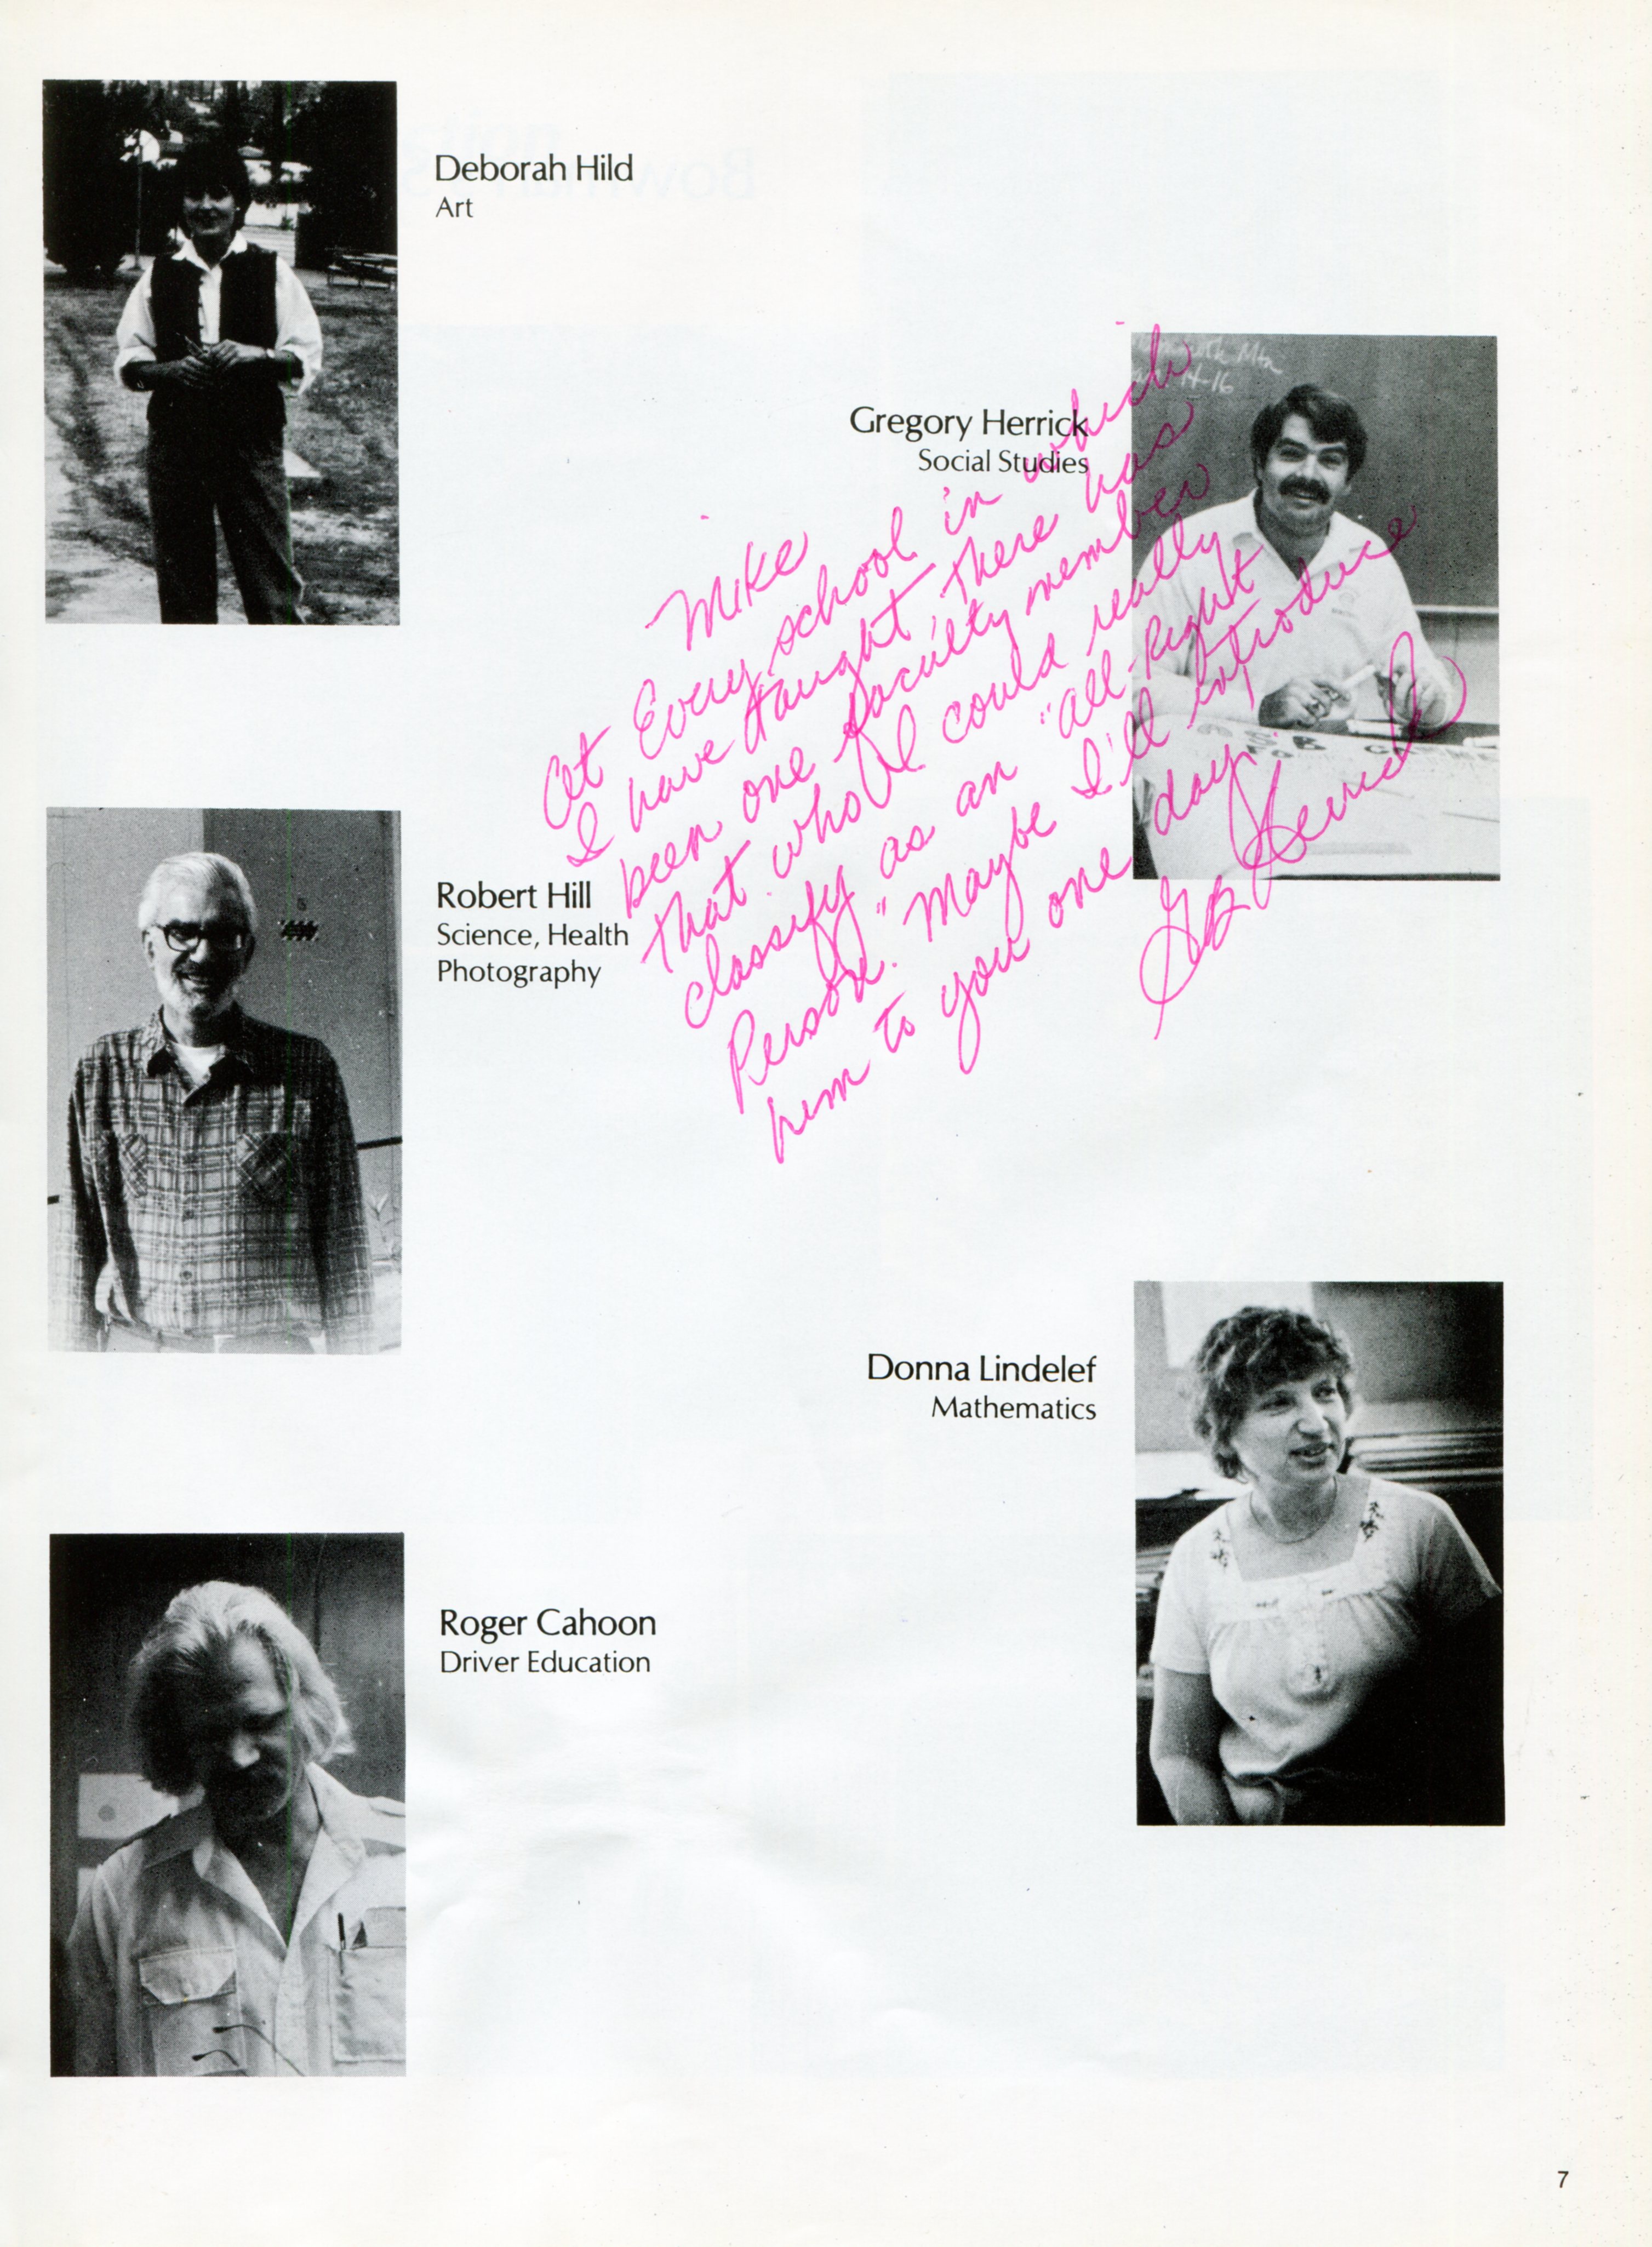 Deborah Hild
Art
Gregory Herrick
Social Studies
Mth
14-16
Mike
At Every school in which
I have taught there has
been one faculty member
that who I could really
classify as an "all-Right
Person." Maybe I'll introduce
him to you one day.
GB Herrick
Robert Hill
Science, Health
Photography
Donna Lindelef
Mathematics
Roger Cahoon
Driver Education
7